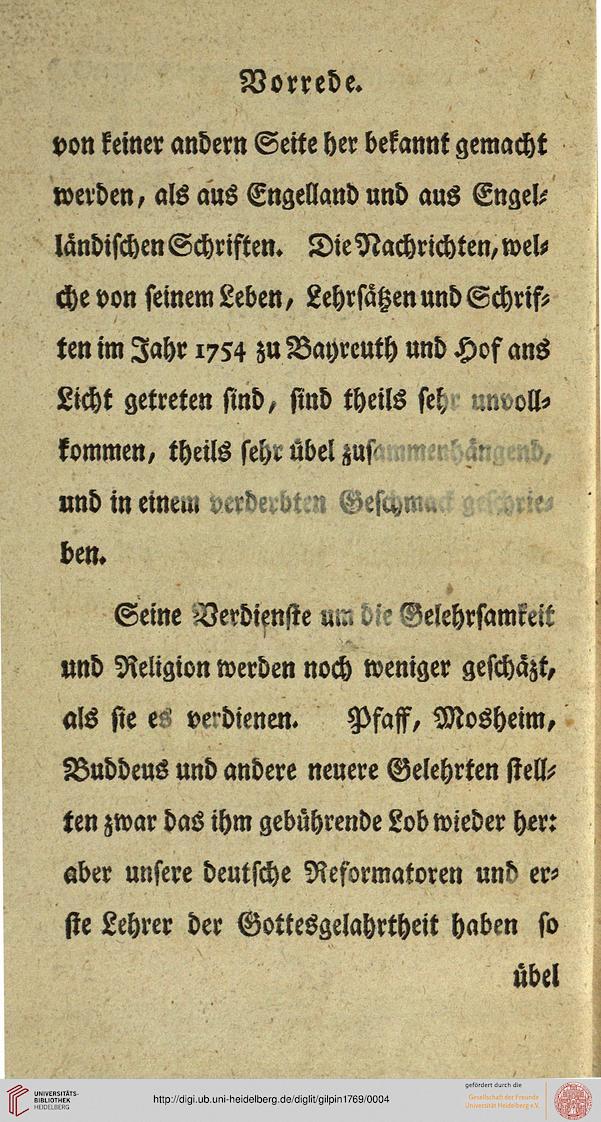 Vorrede.
von keiner andern Seite her bekannt gemacht
werden, als aus Engelland und aus Engel-
ländischen Schriften. Die Nachrichten, wel-
che von seinem Leben, Lehrsätzen und Schrif-
ten im Jahr 1754 zu Bayreuth und Hof ans
Licht getreten sind, sind theils sehr unvoll-
kommen, theils sehr übel zusammenhängend,
und in einem verderbten Geschmack geschrie-
ben.
Seine Verdienste um die Gelehrsamkeit
und Religion werden noch weniger geschäzt,
als sie es verdienen. Pfaff, Mosheim,
Buddeus und andere neuere Gelehrten stell-
ten zwar das ihm gebührende Lob wieder her:
aber unsere deutsche Reformatoren und er-
ste Lehrer der Gottesgelahrtheit haben so
übel
UNIVERSITÄTS-
BIBLIOTHEK
HEIDELBERG
http://digi.ub.uni-heidelberg.de/diglit/gilpin1769/0004
gefördert durch die
Gesellschaft der Freunde
Universität Heidelberg e.V.